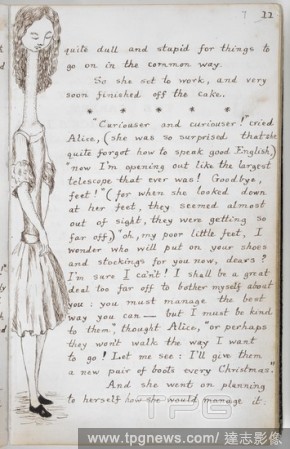 22
quite dull and stupid for things to
go on in the common way.
So she set to work, and very
soon finished off the cake.
* * * * * *
"Curiouser and curiouser!" cried
Alice, (she was so surprised that she
quite forgot how to speak good English,)
"now I'm opening out like the largest
telescope that ever was! Goodbye,
feet!" (for when she looked down
at her feet, they seemed almost
out of sight, they were getting so
far off,) "oh, my poor little feet, I
wonder who will put on your shoes
and stockings for you now, dears?
I'm sure I can't! I shall be a great
deal too far off to bother myself about
you: you must manage the best
way you can — but I must be kind
to them", thought Alice, "or perhaps
they won't walk the way I want
to go! Let me see: I'll give them
a new pair of boots every Christmas."
And she went on planning
to herself how she would manage it:
TPG
www.tpgnews.com / 達志影像